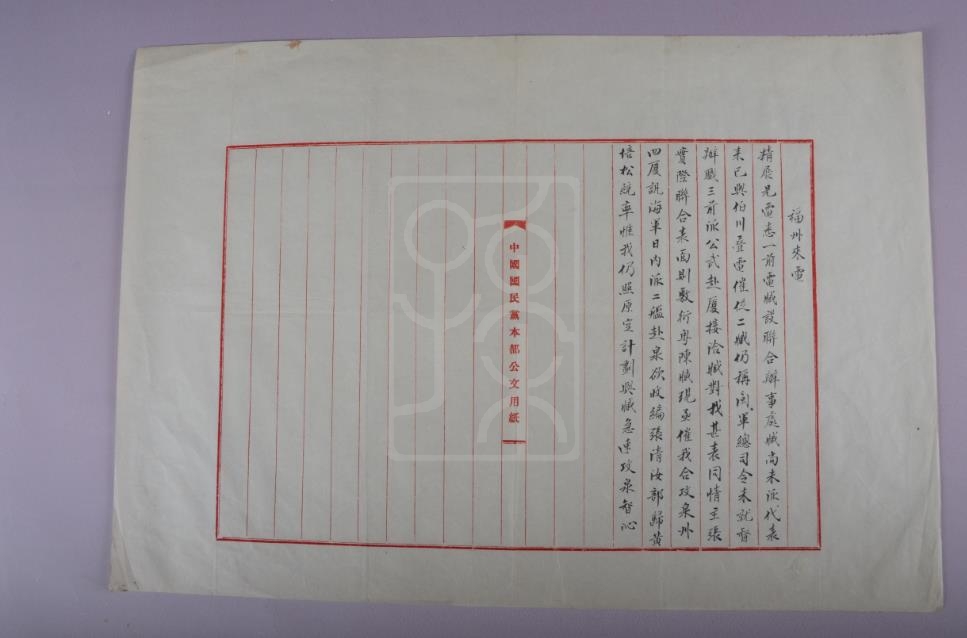 福州來電
精展兄電悉一前電臧設聯合辦事處臧尚未派代表
來已與伯川疊電催促二臧仍稱閩軍總司令未就督
辦職三前派公武赴厦接洽臧對我甚表同情主張
實際聯合表面則敷衍粵陳臧現亟催我合攻泉州
四厦訊海軍日內派二艦赴泉欲收編張清汝部歸黃
培松統率惟我仍照原定計劃與臧急速攻泉智沁
中國國民黨本部公文用紙